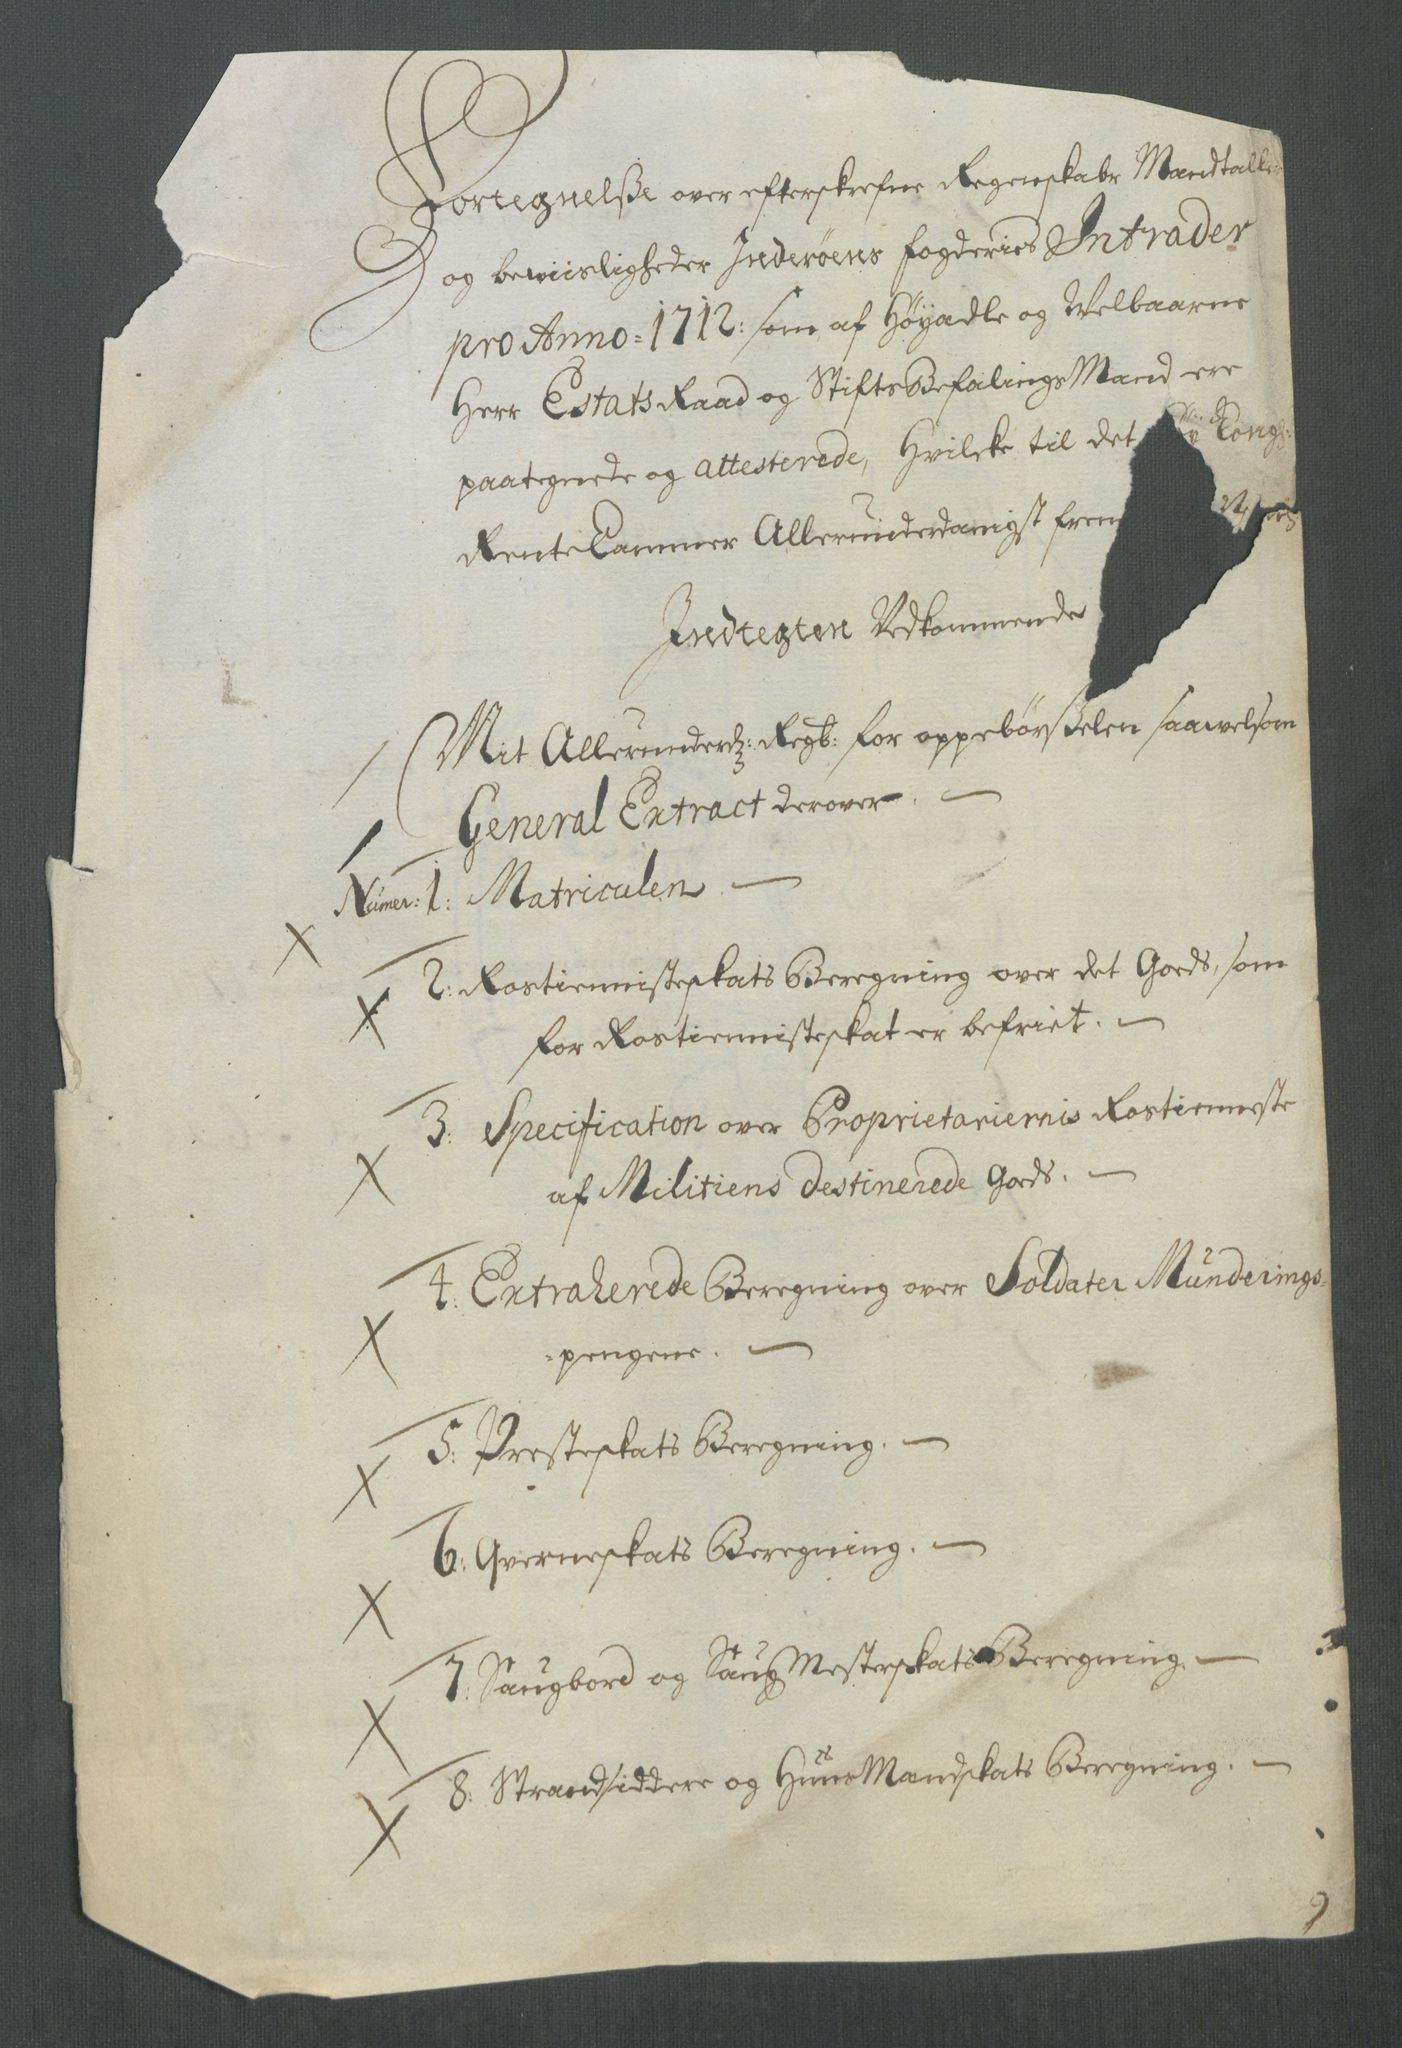 Fortegnelsse over efterskrefne Regenskabr Mandtaller
og bewiisligheder Inderöens fogderies Intrader
pro Anno = 1712: som af Höyadle og Welbaarne
Herr Estats Raad og Stifts Befalings Mand ere
paategnede og attesterede, Hvilcke til det Kongl:
Rente Cammer Allerunderdanigst frem
Indtegten Vedkommende
Mit Allerunderd: Regb: for oppebörsselen saawelsom
General Extract derover. —
Numer: 1: Matriculen —
2: Rostiennisteskats Beregning over det Goeds, som
for Rostiennisteskat er befriet. —
3: Specification over Proprietariernis Rostienneste
af Militiens destinerede Goeds. —
4: Extraherede Beregning over Soldater Munderings-
-pengene. —
5: Presteskats Beregning. —
6: Qverneskats Beregning. —
7: Saugbord og Saug Mesterskats Beregning. —
8: Strandsiddere og Huus Mandskats Beregning. —
9